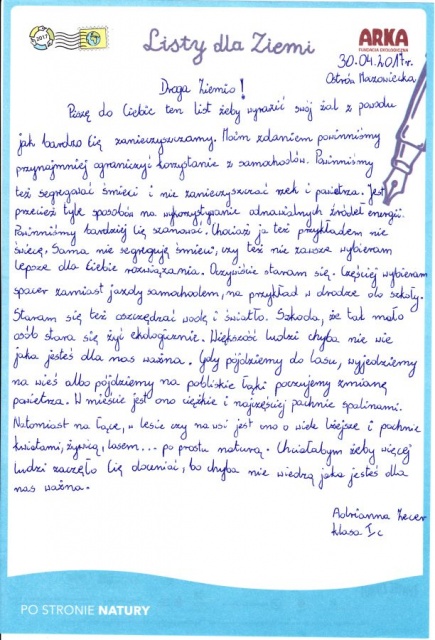 2017
Listy dla Ziemi
ARKA
FUNDACJA EKOLOGICZNA
30.04.2017r.
Ostrów Mazowiecka
Droga Ziemio!
Piszę do Ciebie ten list żeby wyrazić swój żal z powodu
jak bardzo Cię zanieczyszczamy. Moim zdaniem powinniśmy
przynajmniej ograniczyć korzystanie z samochodów. Powinniśmy
też segregować śmieci i nie zanieczyszczać rzek i powietrza. Jest
przecież tyle sposobów na wykorzystywanie odnawialnych źródeł energii.
Powinniśmy bardziej Cię szanować. Chociaż ja też przykładem nie
świecę. Sama nie segreguję śmieci, czy też nie zawsze wybieram
lepsze dla Ciebie rozwiązania. Oczywiście staram się. Częściej wybieram
spacer zamiast jazdy samochodem, na przykład w drodze do szkoły.
Staram się też oszczędzać wodę i światło. Szkoda, że tak mało
osób stara się żyć ekologicznie. Większość ludzi chyba nie wie
jaka jesteś dla nas ważna. Gdy pójdziemy do lasu, wyjedziemy
na wieś albo pójdziemy na pobliskie łąki poczujemy zmianę
powietrza. W mieście jest ono ciężkie i najczęściej pachnie spalinami.
Natomiast na łące, w lesie czy na wsi jest ono o wiele lżejsze i pachnie
kwiatami, żywicą, lasem... po prostu naturą. Chciałabym żeby więcej
ludzi zaczęło Cię doceniać, bo chyba nie wiedzą jaka jesteś dla
nas ważna.
Adrianna
klasa I c
PO STRONIE NATURY